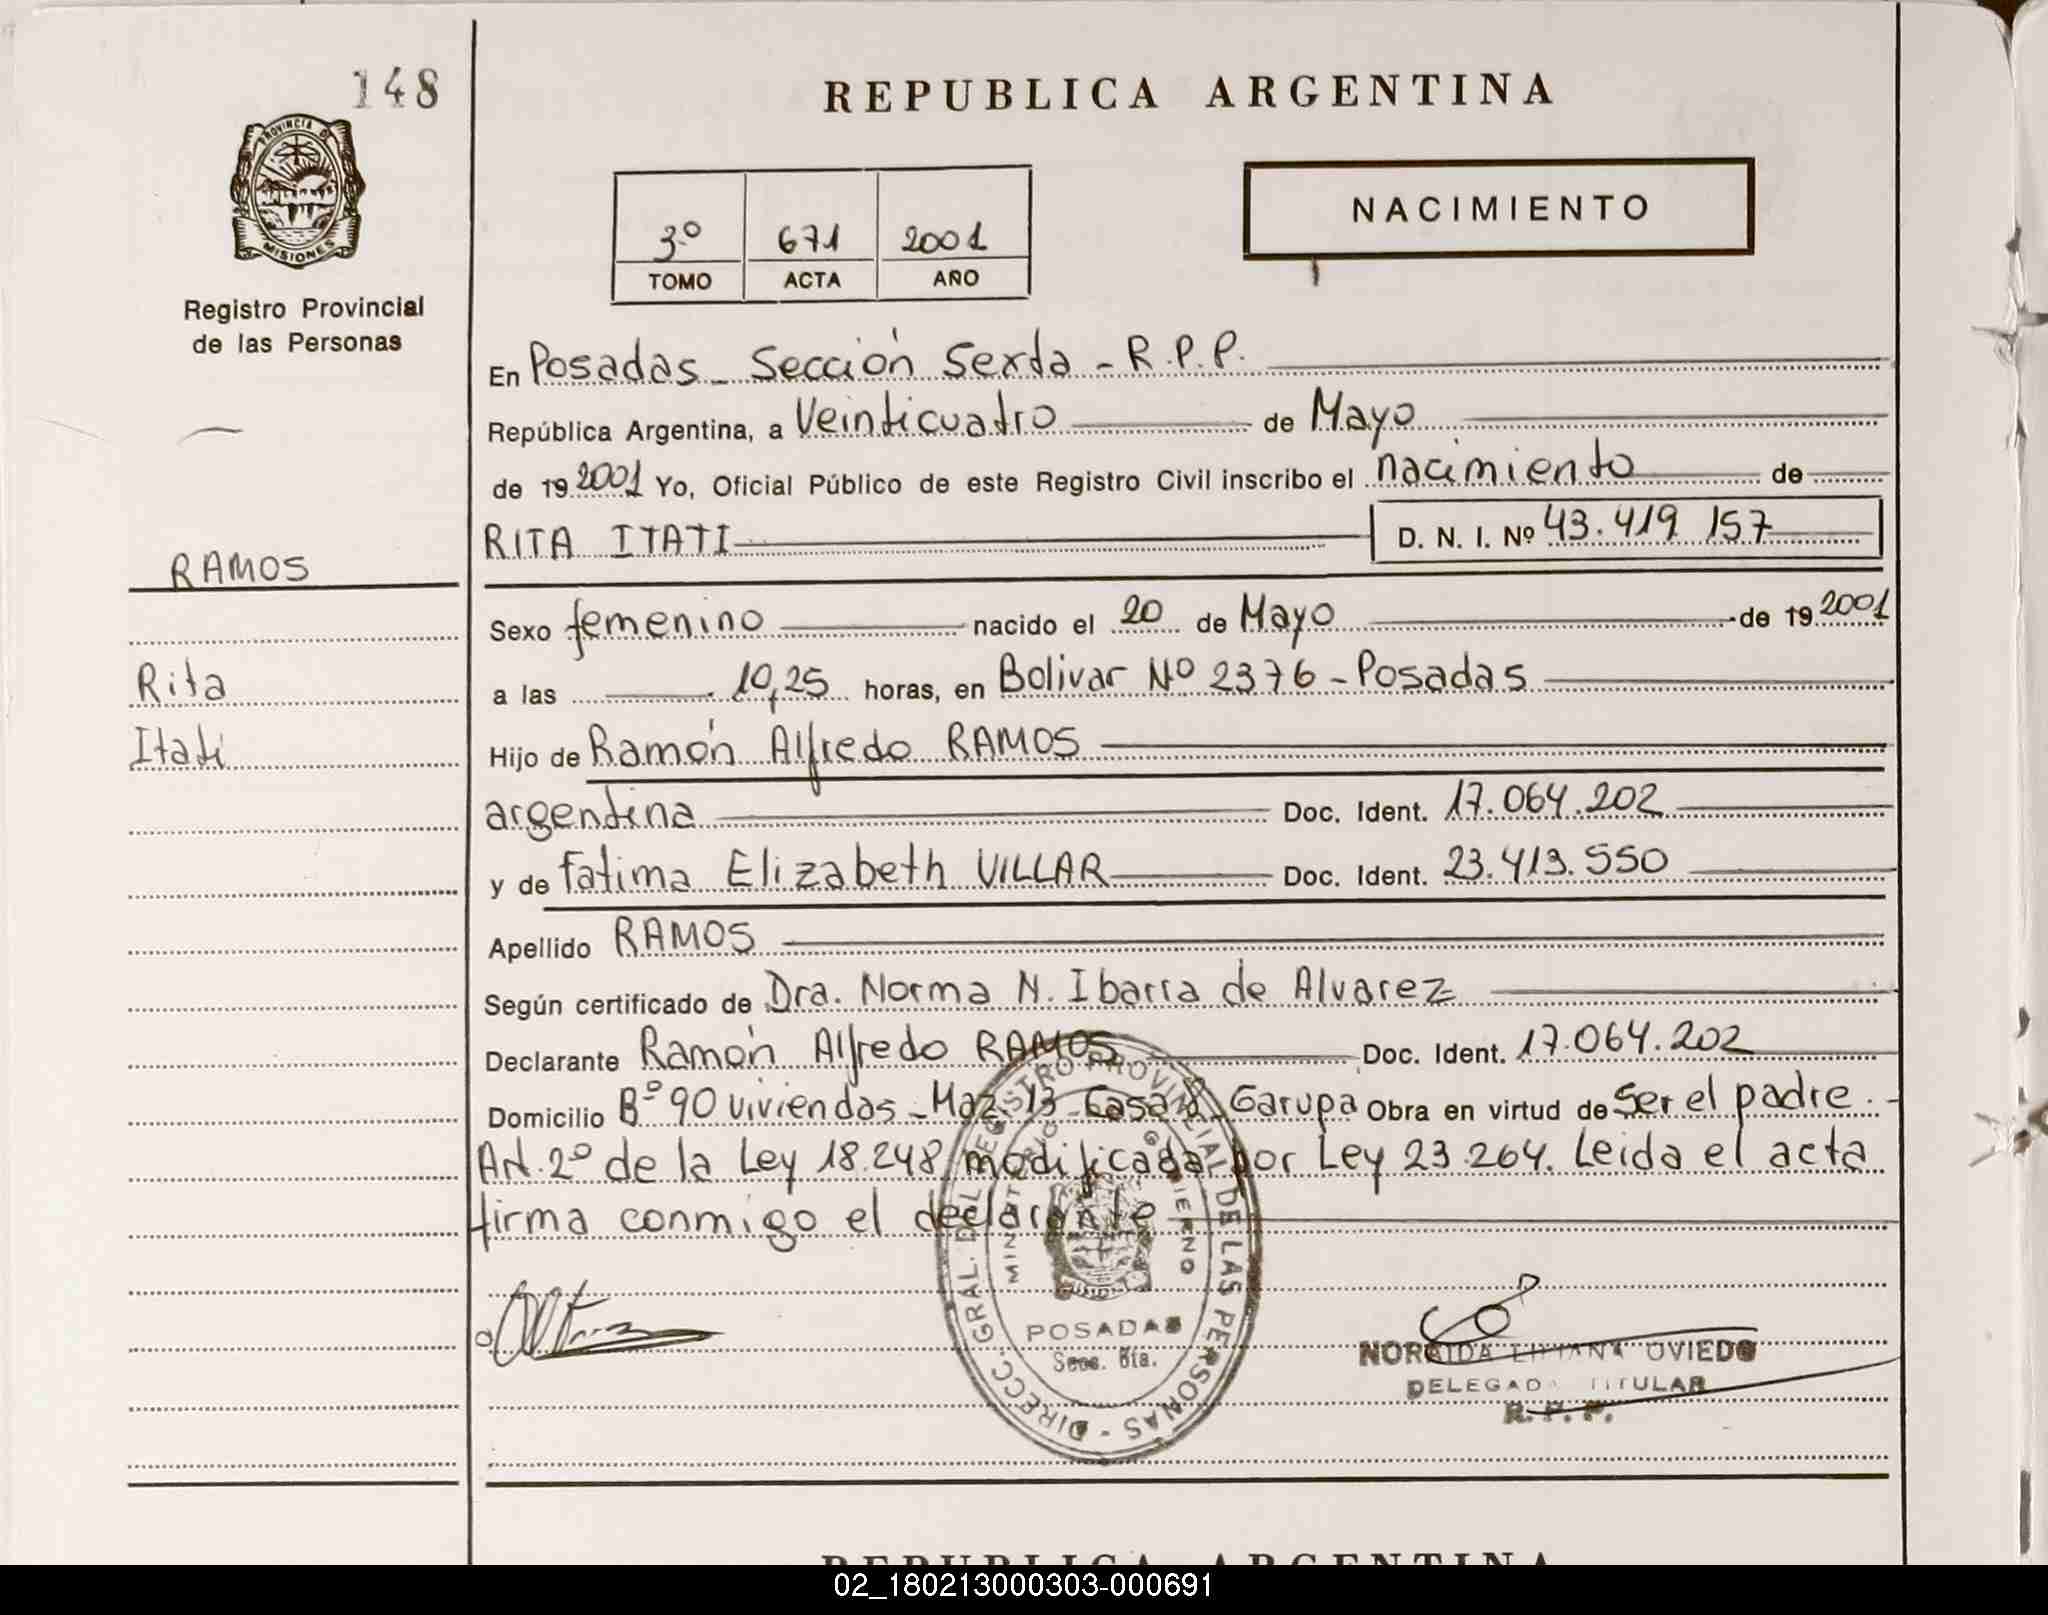 148
REPUBLICA ARGENTINA
PROVINCIA DE
MISIONES
NACIMIENTO
3º 671 2001
TOMO ACTA AÑO
Registro Provincial
de las Personas
En Posadas - Sección Sexta - R.P.P.
República Argentina, a Veinticuatro de Mayo
de 19 2001 Yo, Oficial Público de este Registro Civil inscribo el nacimiento de
RITA ITATI D. N. I. Nº 43.419 157
RAMOS
Rita
Itatí
Sexo femenino nacido el 20 de Mayo de 19 2001
a las 10,25 horas, en Bolivar Nº 2376 - Posadas
Hijo de Ramón Alfredo RAMOS
argentina Doc. Ident. 17.064.202
y de Fatima Elizabeth VILLAR Doc. Ident. 23.413.550
Apellido RAMOS
Según certificado de Dra. Norma N. Ibarra de Alvarez
Declarante Ramón Alfredo RAMOS Doc. Ident. 17.064.202
Domicilio Bº 90 viviendas - Maz. 13 - Casa 8 - Garupa Obra en virtud de ser el padre.
Art. 2º de la Ley 18.248 modificada por Ley 23.264. Leida el acta
firma conmigo el declarante
DIRECC. GRAL. DEL REGISTRO PROVINCIAL DE LAS PERSONAS -
MINISTERIO GOBIERNO
POSADAS
Secc. 6ta.
NORAIDA LILIANA OVIEDO
DELEGADA TITULAR
R. P. P.
REPUBLICA ARGENTINA
02_180213000303-000691